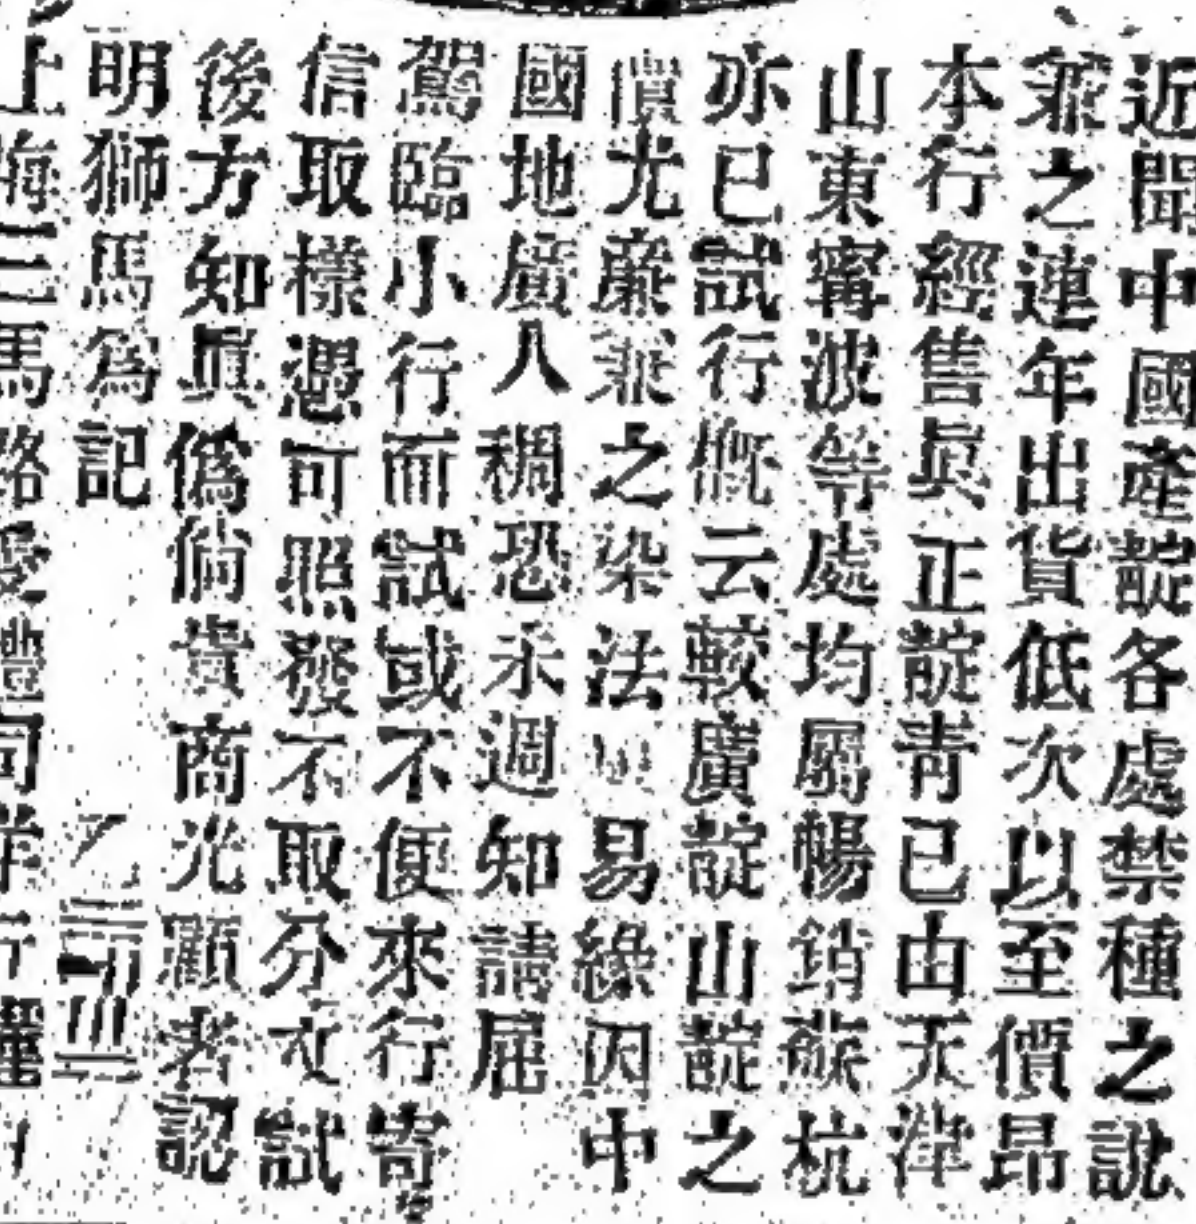 近聞中國產靛各處禁種之說
兼之連年出貨低次以至價昂
本行經售眞正靛青已由天津
山東甯波等處均屬暢銷蘇杭
亦已試行概云較廣靛山靛之
價尤廉兼之染法易綠因中
國地廣人稠恐未週知請屈
駕臨小行而試或不便來行寄
信取樣憑可照發不取分文試
後方知眞僞倘貴商光顧者認
明獅馬為記
上海三馬路愛禮司洋行謹